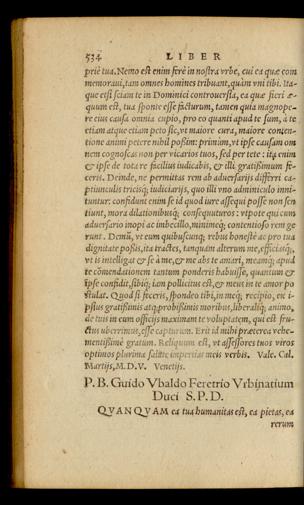 534 LIBER
priè tua. Nemo est enim ferè in nostra vrbe, cui ea quæ com
memoraui, tam omnes homines tribuant, quàm vni tibi. Ita-
que etsi sciam te in Dominici controuersia, ea quæ fieri æ-
quum est, tua sponte esse facturum, tamen quia magnope-
re eius causa omnia cupio, pro eo quanti apud te sum, à te
etiam atque etiam peto sic, vt maiore cura, maiore conten-
tione animi petere nihil possim: primùm, vt ipse causam om
nem cognoscas non per vicarios tuos, sed per te te: ita enim
& ipse de tota re faciliùs iudicabis, & illi gratissimum fe-
ceris. Deinde, ne permittas rem ab aduersarijs differri ca-
ptiunculis tricisq́; iudiciarijs, quo illi vno adminiculo inni-
tuntur: confidunt enim se id quod iure assequi posse non sen
tiunt, mora dilationibusq́; consequuturos: vtpote qui cum
aduersario inopi ac imbecillo, minimeq́; contentioso rem ge
runt. Demũ, vt eum quibuscunq; rebus honestè ac pro tua
dignitate possis, ita tractes, tanquàm alterum me, efficiasq́;,
vt is intelligat & se à me, & me abs te amari, meamq́; apud
te cõmendationem tantum ponderis habuisse, quantum &
ipse confidit, sibiq́; iam pollicitus est, & meus in te amor po
stulat. Quod si feceris, spondeo tibi, in meq́; recipio, ex i-
psius gratissimis atq; probissimis moribus, liberaliq́; animo,
de tuis in eum officijs maximam te voluptatem, qui est fru-
ctus vberrimus, esse capturum. Erit id mihi præterea vehe-
mentissimè gratum. Reliquum est, vt assessores tuos viros
optimos plurima salute impertias meis verbis. Vale. Cal.
Martijs, M.D.V. Venetijs.
P.B. Guido Vbaldo Feretrio Vrbinatium
Duci S.P.D.
QVANQVAM ea tua humanitas est, ea pietas, ea
rerum